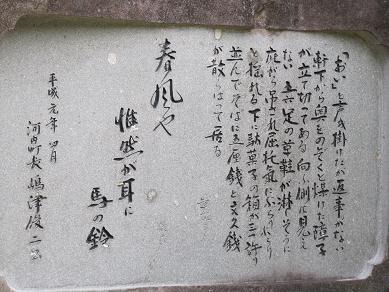 「おい」と声を掛けたが返事がない
軒下から奥をのぞくと煤けた障子
が立て切ってある 向う側は見え
ない 五六足の草鞋が淋しそうに
庇から吊され屈托気にふらりふらり
と揺れる 下に駄菓子の箱が三つ許り
並んでそばに五厘銭と文久銭
が散らばって居る
春風や
惟然が耳に
馬の鈴
平成元年四月
河内町長 嶋津